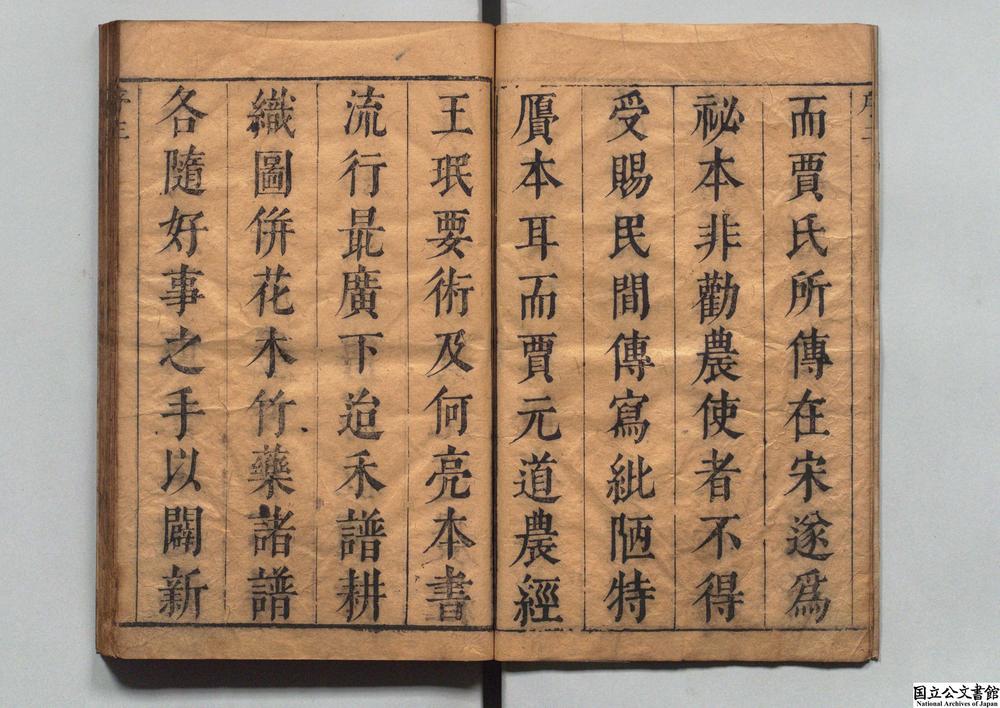 而賈氏所傳在宋遂爲
祕本非勸農使者不得
受賜民間傳寫紕陋特
贋本耳而賈元道農經
王珉要術及何亮本書
流行最廣下迨禾譜耕
織圖併花木竹藥諸譜
各隨好事之手以闢新
国立公文書館
National Archives of Japan